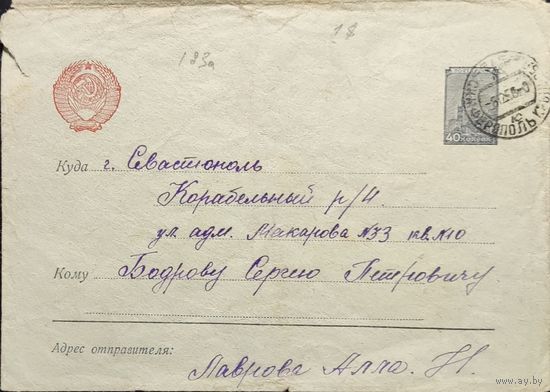 183а
18
40 КОПЕЕК
СИМФЕРОПОЛЬ
Куда г. Севастополь
Корабельный р/н.
ул. адм. Макарова №33 кв. №10
Кому Бодрову Сергею Петровичу
Адрес отправителя:
Лаврова Алла. Н.
www.ay.by